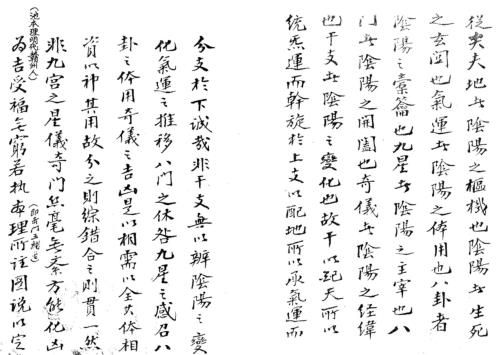 從矣夫天地者陰陽之樞機也生死
之玄関也氣運者陰陽之体用也八卦者
陰陽之橐籥也九星者陰陽之主宰也八
門者陰陽之開闔也奇儀者陰陽之経緯
也干支者陰陽之變化也故干以紀天所以
統炁運而斡旋於上支以配地所以承氣運而
分支於下誠哉非干支無以辨陰陽之變
化氣運之推移八門之休咎九星之感召八
卦之体用奇儀之吉凶是以相需以全其体相
資以神其用故分之則綜錯合之則貫一然
非九宮之星儀奇門丝毫無紊方能化凶
為吉受福無窮若执本理所注图說以定
(池本理明代赣州人)
(即奇門五總龜)